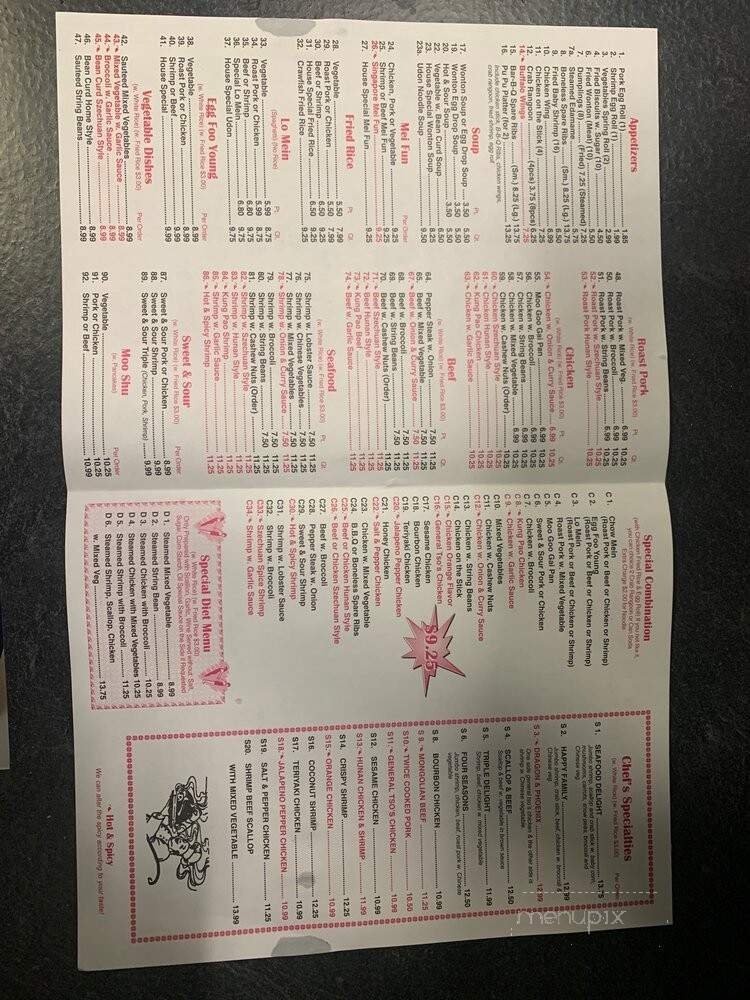 Appetizers
1. Pork Egg Roll (1) 1.85
2. Shrimp Egg Roll (1) 1.99
3. Vegetable Spring Roll (2) 2.99
4. Fried Biscuits w. Sugar (10) 4.50
6. Fried Wonton (Meat) (10) 5.50
7. Dumplings (8) (Fried) 7.25 (Steamed) 7.25
7a. Steamed Edamame 5.75
8. Boneless Spare Ribs (Sm.) 8.25 (Lg.) 13.75
9. Fried Baby Shrimp (16) 6.50
10. Chicken Wings
11. Chicken on the Stick (4)
12. Crab Rangoon (4pcs) 3.75 (8pcs)
14. Buffalo Wings 7.25
15. Bar-B-Q Spare Ribs (Sm.) 8.25 (Lg.) 13.75
16. Pu Pu Platter (for 2) 13.25
Include chicken stick, B-B-Q ribs, chicken wings,
crab rangoon, fried shrimp, egg roll
Soup
Pt. Qt.
17. Wonton Soup or Egg Drop Soup 3.50 5.50
19. Wonton Egg Drop Soup 3.50 5.50
20. Hot & Sour Soup 3.50 5.50
22. Vegetable w. Bean Curd Soup 6.50
23. House Special Wonton Soup 8.25
23a. Udon Noodle Soup 9.50
Mei Fun
Qt.
24. Chicken, Pork or Vegetable 9.25
25. Shrimp or Beef Mei Fun 9.25
26. Singapore Mei Fun 9.25
27. House Special Mei Fun 9.25
Fried Rice
Pt. Qt.
28. Vegetable 5.50 7.99
29. Roast Pork or Chicken 5.50 7.99
30. Beef or Shrimp 6.50 9.25
31. House Special Fried Rice 6.50 9.25
32. Crawfish Fried Rice 9.25
Lo Mein
(Spaghetti) (No Rice)
Pt. Qt.
33. Vegetable 5.99 8.75
34. Roast Pork or Chicken 5.99 8.75
35. Beef or Shrimp 6.80 9.75
36. Special Lo Mein 6.80 9.75
37. House Special Udon 9.75
Egg Foo Young
(w. White Rice) (w. Fried Rice $3.00)
Per Order
38. Vegetable 8.99
39. Roast Pork or Chicken 8.99
40. Shrimp or Beef 9.99
41. House Special 9.99
Vegetable Dishes
(w. White Rice) (w. Fried Rice $3.00)
Per Order
42. Sauteed Mixed Vegetables 8.99
43. Mixed Vegetable w. Garlic Sauce 8.99
44. Broccoli w. Garlic Sauce 8.99
45. Bean Curd Szechuan Style 8.99
46. Bean Curd Home Style 8.99
47. Sauteed String Beans 8.99
Roast Pork
(w. White Rice) (w. Fried Rice $3.00)
Pt. Qt.
48. Roast Pork w. Mixed Veg. 6.99 10.25
50. Roast Pork w. Broccoli 6.99 10.25
51. Roast Pork w. String Beans 6.99 10.25
52. Roast Pork w. Szechuan Style 10.25
53. Roast Pork Hunan Style 10.25
Chicken
(w. White Rice) (w. Fried Rice $3.00)
Pt. Qt.
54. Chicken w. Onion & Curry Sauce 6.99 10.25
55. Moo Goo Gai Pan 6.99 10.25
56. Chicken w. Broccoli 6.99 10.25
57. Chicken w. String Beans 6.99 10.25
58. Chicken w. Mixed Vegetable 6.99 10.25
59. Chicken w. Cashew Nuts (Order) 10.25
60. Chicken Szechuan Style 10.25
61. Chicken Hunan Style 10.25
62. Kung Pao Chicken 10.25
63. Chicken w. Garlic Sauce 10.25
Beef
(w. White Rice) (w. Fried Rice $3.00)
Pt. Qt.
64. Pepper Steak w. Onion 7.50 11.25
67. Beef w. Onion & Curry Sauce 7.50 11.25
68. Beef w. Broccoli 7.50 11.25
69. Beef w. String Beans 7.50 11.25
70. Beef w. Cashew Nuts (Order) 11.25
71. Beef Szechuan Style 11.25
72. Beef Hunan Style 11.25
73. Kung Pao Beef 11.25
74. Beef w. Garlic Sauce 11.25
Seafood
(w. White Rice) (w. Fried Rice $3.00)
Pt. Qt.
75. Shrimp w. Lobster Sauce 7.50 11.25
76. Shrimp w. Chinese Vegetables 7.50 11.25
77. Shrimp w. Mixed Vegetables 7.50 11.25
78. Shrimp w. Onion & Curry Sauce 7.50 11.25
79. Shrimp w. Broccoli 7.50 11.25
80. Shrimp w. String Beans 7.50 11.25
81. Shrimp w. Cashew Nuts (Order) 11.25
82. Shrimp w. Szechuan Style 11.25
83. Shrimp w. Hunan Style 11.25
84. Kung Pao Shrimp 11.25
85. Shrimp w. Garlic Sauce 11.25
86. Hot & Spicy Shrimp 11.25
Sweet & Sour
(w. White Rice) (w. Fried Rice $3.00)
Per Order
87. Sweet & Sour Pork or Chicken 8.99
88. Sweet & Sour Shrimp 9.99
89. Sweet & Sour Triple (Chicken, Pork, Shrimp) 9.99
Moo Shu
(w. Pancakes)
Per Order
90. Vegetable 10.25
91. Pork or Chicken 10.25
92. Shrimp or Beef 10.99
Special Combination
(with Chicken Fried Rice & Egg Roll) If you not like it,
you can change to Crab Rangoon or Can Soda
Extra Charge $2.00 for Noodle
C 1. Chow Mein
(Roast Pork or Beef or Chicken or Shrimp)
C 2. Egg Foo Young
(Roast Pork or Beef or Chicken or Shrimp)
C 3. Lo Mein
(Roast Pork or Beef or Chicken or Shrimp)
C 4. Roast Pork w. Mixed Vegetable
C 5. Moo Goo Gai Pan
C 6. Sweet & Sour Pork or Chicken
C 7. Chicken w. Broccoli
C 8. Kung Pao Chicken
C 9. Chicken w. Garlic Sauce
C10. Mixed Vegetables
C11. Chicken w. Cashew Nuts
C12. Chicken w. Onion & Curry Sauce
C13. Chicken w. String Beans
C14. Chicken on the Stick
C15. Chicken Orange Flavor
C16. General Tso's Chicken
C17. Sesame Chicken
C18. Bourbon Chicken
C19. Teriyaki Chicken
C20. Jalapeno Pepper Chicken
C21. Honey Chicken
C22. Salt & Pepper Chicken
C23. Chicken w. Mixed Vegetable
C24. B.B.Q or Boneless Spare Ribs
C25. Beef or Chicken Hunan Style
C26. Beef or Chicken Szechuan Style
C27. Beef w. Broccoli
C28. Pepper Steak w. Onion
C29. Sweet & Sour Shrimp
C30. Hot & Spicy Shrimp
C31. Shrimp w. Lobster Sauce
C32. Shrimp w. Broccoli
C33. Szechuan Spice Shrimp
C34. Shrimp w. Garlic Sauce
$9.25
Special Diet Menu
(w. White Rice) (w. Fried Rice $3.00)
D 1. Steamed Mixed Vegetable 8.99
D 2. Steamed String Bean 8.99
D 3. Steamed Chicken with Broccoli 10.25
D 4. Steamed Chicken with Mixed Vegetables 10.25
D 5. Steamed Shrimp with Broccoli 11.25
D 6. Steamed Shrimp, Scallop, Chicken
w. Mixed Veg. 13.75
Chef's Specialties
(w. White Rice) (w. Fried Rice $3.00)
Per Order
S 1. SEAFOOD DELIGHT 13.75
S 2. HAPPY FAMILY 12.99
S 3. DRAGON & PHOENIX 12.99
S 4. SCALLOP & BEEF 12.50
Scallop & beef w. vegetable in brown sauce
S 5. TRIPLE DELIGHT 11.99
Shrimp, beef, chicken w. mixed vegetable
S 6. FOUR SEASONS 12.50
Jumbo shrimp, chicken, beef, roast pork w. Chinese
vegetable
S 8. BOURBON CHICKEN 10.99
S 9. MONGOLIAN BEEF 11.25
S10. TWICE COOKED PORK 10.50
S11. GENERAL TSO'S CHICKEN 10.99
S12. SESAME CHICKEN 10.99
S13. HUNAN CHICKEN & SHRIMP 11.99
S14. CRISPY SHRIMP 12.25
S15. ORANGE CHICKEN 10.99
S16. COCONUT SHRIMP 12.25
S17. TERIYAKI CHICKEN 10.99
S18. JALAPENO PEPPER CHICKEN 10.99
S19. SALT & PEPPER CHICKEN 11.25
S20. SHRIMP BEEF SCALLOP
WITH MIXED VEGETABLE 13.99
Hot & Spicy
We can alter the spicy according to your taste!
menupix